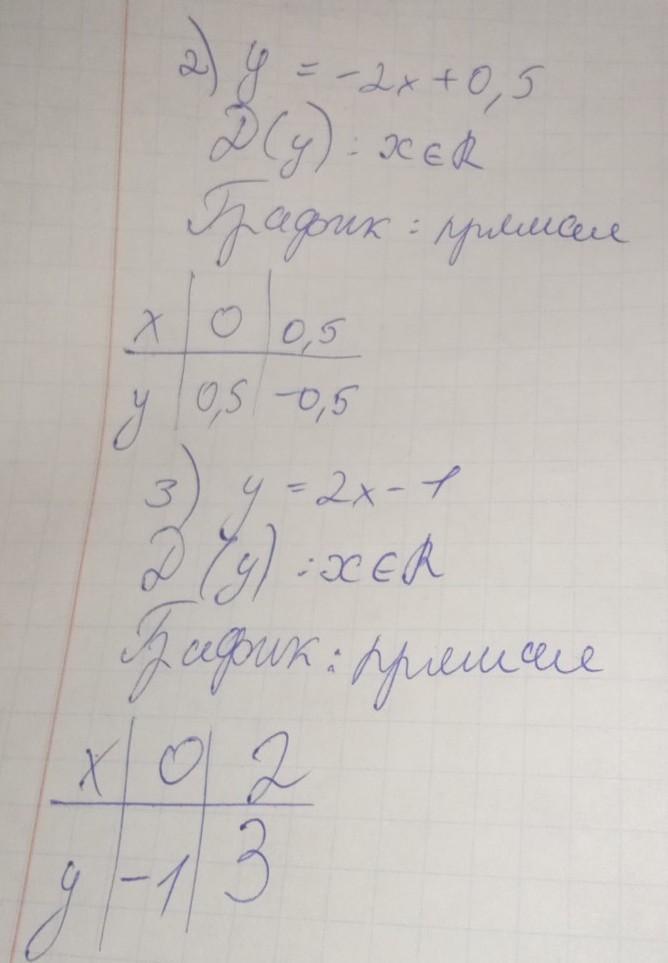 2) y = -2x + 0,5
D(y) : x ∈ R
График : прямая
x | 0 | 0,5
y | 0,5 | -0,5
3) y = 2x - 1
D(y) : x ∈ R
График : прямая
x | 0 | 2
y | -1 | 3